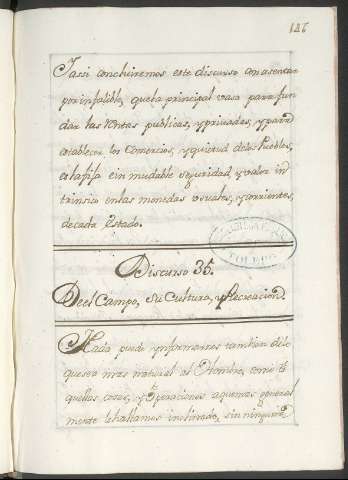 146
Yassi concluiremos este discurso con asentar
por infalible, que la principal vasa para fun
dar las Rentas publicas, y privadas, y para
establecer los Comercios, y quietud de los Pueblos,
es la fixa e in mudable seguridad, y valor in
trinsico en las monedas usuales, y corrientes,
de cada Estado.
TOLEDO
Discurso 35.
De el Campo, su Cultura, y Recreacion.
Nada puede ynformarnos tambien de lo
que sea mas natural al Hombre, como
quellas cosas, y Operaciones aque mas general
mente le hallamos inclinado, sin ninguna